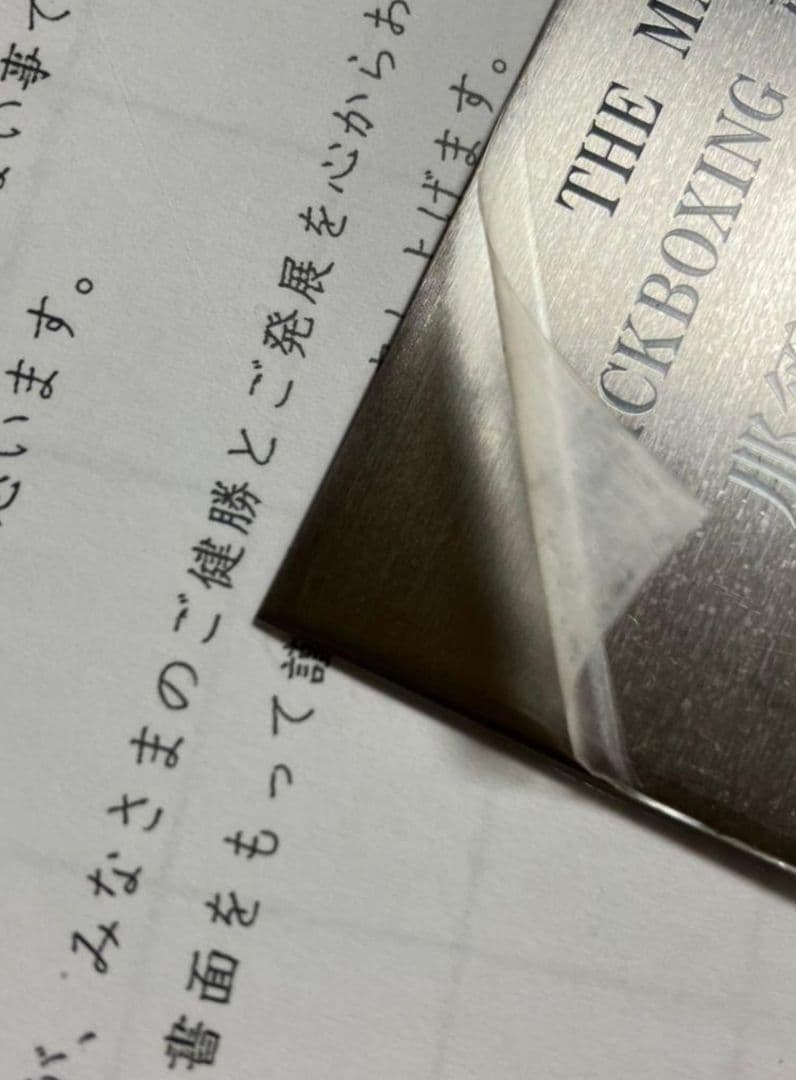 い事で
います。
が、みなさまのご健勝とご発展を心からお
書面をもって謹 上げます。
THE
ICKBOXING